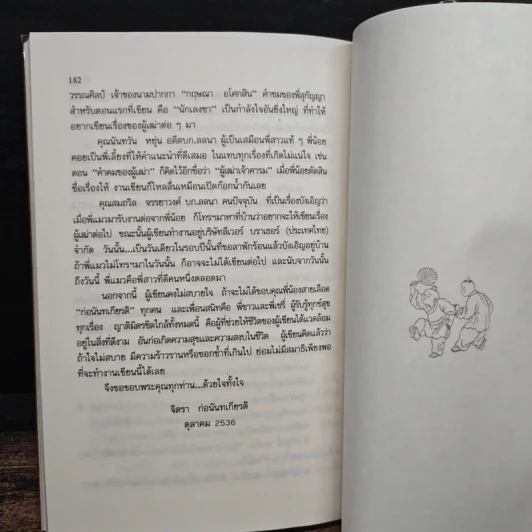 182
วรรณศิลป์ เจ้าของนามปากกา "กฤษณา อโศกสิน" คำชมของพี่สุกัญญา
สำหรับตอนแรกที่เขียน คือ "นักเลงชา" เป็นกำลังใจอันยิ่งใหญ่ ที่ทำให้
อยากเขียนเรื่องของผู้เฒ่าต่อ ๆ มา
คุณนันทวัน หยุ่น อดีตบก.ลลนา ผู้เป็นเสมือนพี่สาวแท้ ๆ พี่น้อย
คอยเป็นพี่เลี้ยงที่ให้คำแนะนำที่ดีเสมอ ในแทบทุกเรื่องที่เกิดไม่แน่ใจ เช่น
ตอน "คำคมของผู้เฒ่า" ก็คิดไว้อีกชื่อว่า "ผู้เฒ่าเจ้าคารม" เมื่อพี่น้อยตัดสิน
ชื่อเรื่องให้ งานเขียนก็ไหลลื่นเหมือนเปิดก๊อกน้ำทันเลย
คุณสมถวิล จรรยาวงศ์ บก.ลลนา คนปัจจุบัน ที่เป็นเรื่องบังเอิญว่า
เมื่อพี่แมวมารับงานต่อจากพี่น้อย ก็โทรฯมาหาที่บ้านว่าอยากจะให้เขียนเรื่อง
ผู้เฒ่าต่อไป ขณะนั้นผู้เขียนทำงานอยู่บริษัทลีเวอร์ บราเธอร์ (ประเทศไทย)
จำกัด วันนั้น...เป็นวันเดียวในรอบปีนั้นที่ขอลาพักร้อนแล้วบังเอิญอยู่บ้าน
ถ้าพี่แมวไม่โทรฯมาในวันนั้น ก็อาจจะไม่ได้เขียนต่อไป และนับจากวันนั้น
ถึงวันนี้ พี่แมวคือพี่สาวที่ดีคนหนึ่งตลอดมา
นอกจากนี้ ผู้เขียนคงไม่สบายใจ ถ้าจะไม่ได้ขอบคุณพี่น้องสายเลือด
"ก่อนันทเกียรติ" ทุกคน และเพื่อนสนิทคือ พี่ขาวและพี่เชรี่ ผู้รับรู้ทุกข์สุข
ทุกเรื่อง ญาติมิตรชิดใกล้ทั้งหมดนี้ คือผู้ที่ช่วยให้ชีวิตของผู้เขียนได้แวดล้อม
อยู่ในสิ่งที่ดีงาม อันก่อเกิดความสุขและความสงบในชีวิต ผู้เขียนคิดแล้วว่า
ถ้าใจไม่สบาย มีความร้าวรานหรือชอกช้ำที่เกินไป ย่อมไม่มีสมาธิเพียงพอ
ที่จะทำงานเขียนนี้ได้เลย
จึงขอขอบพระคุณทุกท่าน...ด้วยใจทั้งใจ
จิตรา ก่อนันทเกียรติ
ตุลาคม 2536